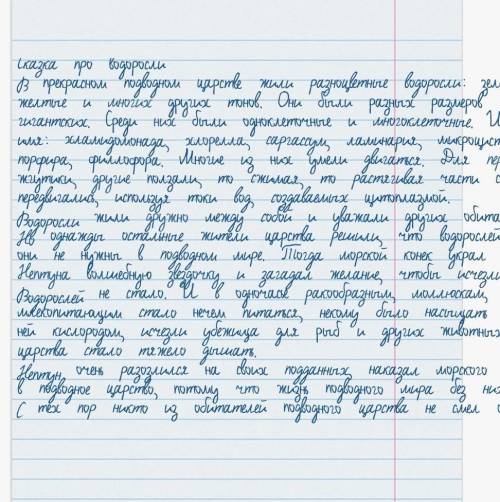 Сказка про водоросли
В прекрасном подводном царстве жили разноцветные водоросли: зел
желтые и многих других тонов. Они были разных размеров
гигантских. Среди них были одноклеточные и многоклеточные. И
имя: хламидомонада, хлорелла, саргассум, ламинария, микроцист
порфира, филлофора. Многие из них умели двигаться. Для пер
жгутики, другие ползали, то сжимая, то растягивая части с
передвигались, используя токи вод, создаваемых цитоплазмой.
Водоросли жили дружно между собой и уважали других обита
Но однажды остальные жители царства решили, что водоросле
они не нужны в подводном мире. Тогда морской конек украл
Нептуна волшебную звездочку и загадал желание, чтобы исчезли
Водорослей не стало. И в одночасье ракообразным, моллюскам,
млекопитающим стало нечем питаться, некому было насыщать
ней кислородом, исчезли убежища для рыб и других животных
царства стало тяжело дышать.
Нептун, очень разозлился на своих подданных, наказал морского
в подводное царство, потому что жизнь подводного мира без них
С тех пор никто из обитателей подводного царства не смел о